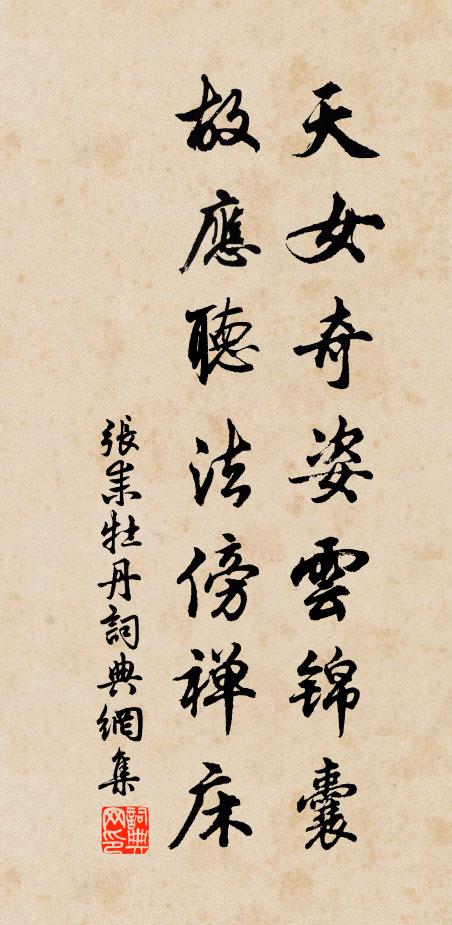 天女奇姿雲錦囊
故應聽法傍禅床
張耒牡丹詞典網集
詞典网印